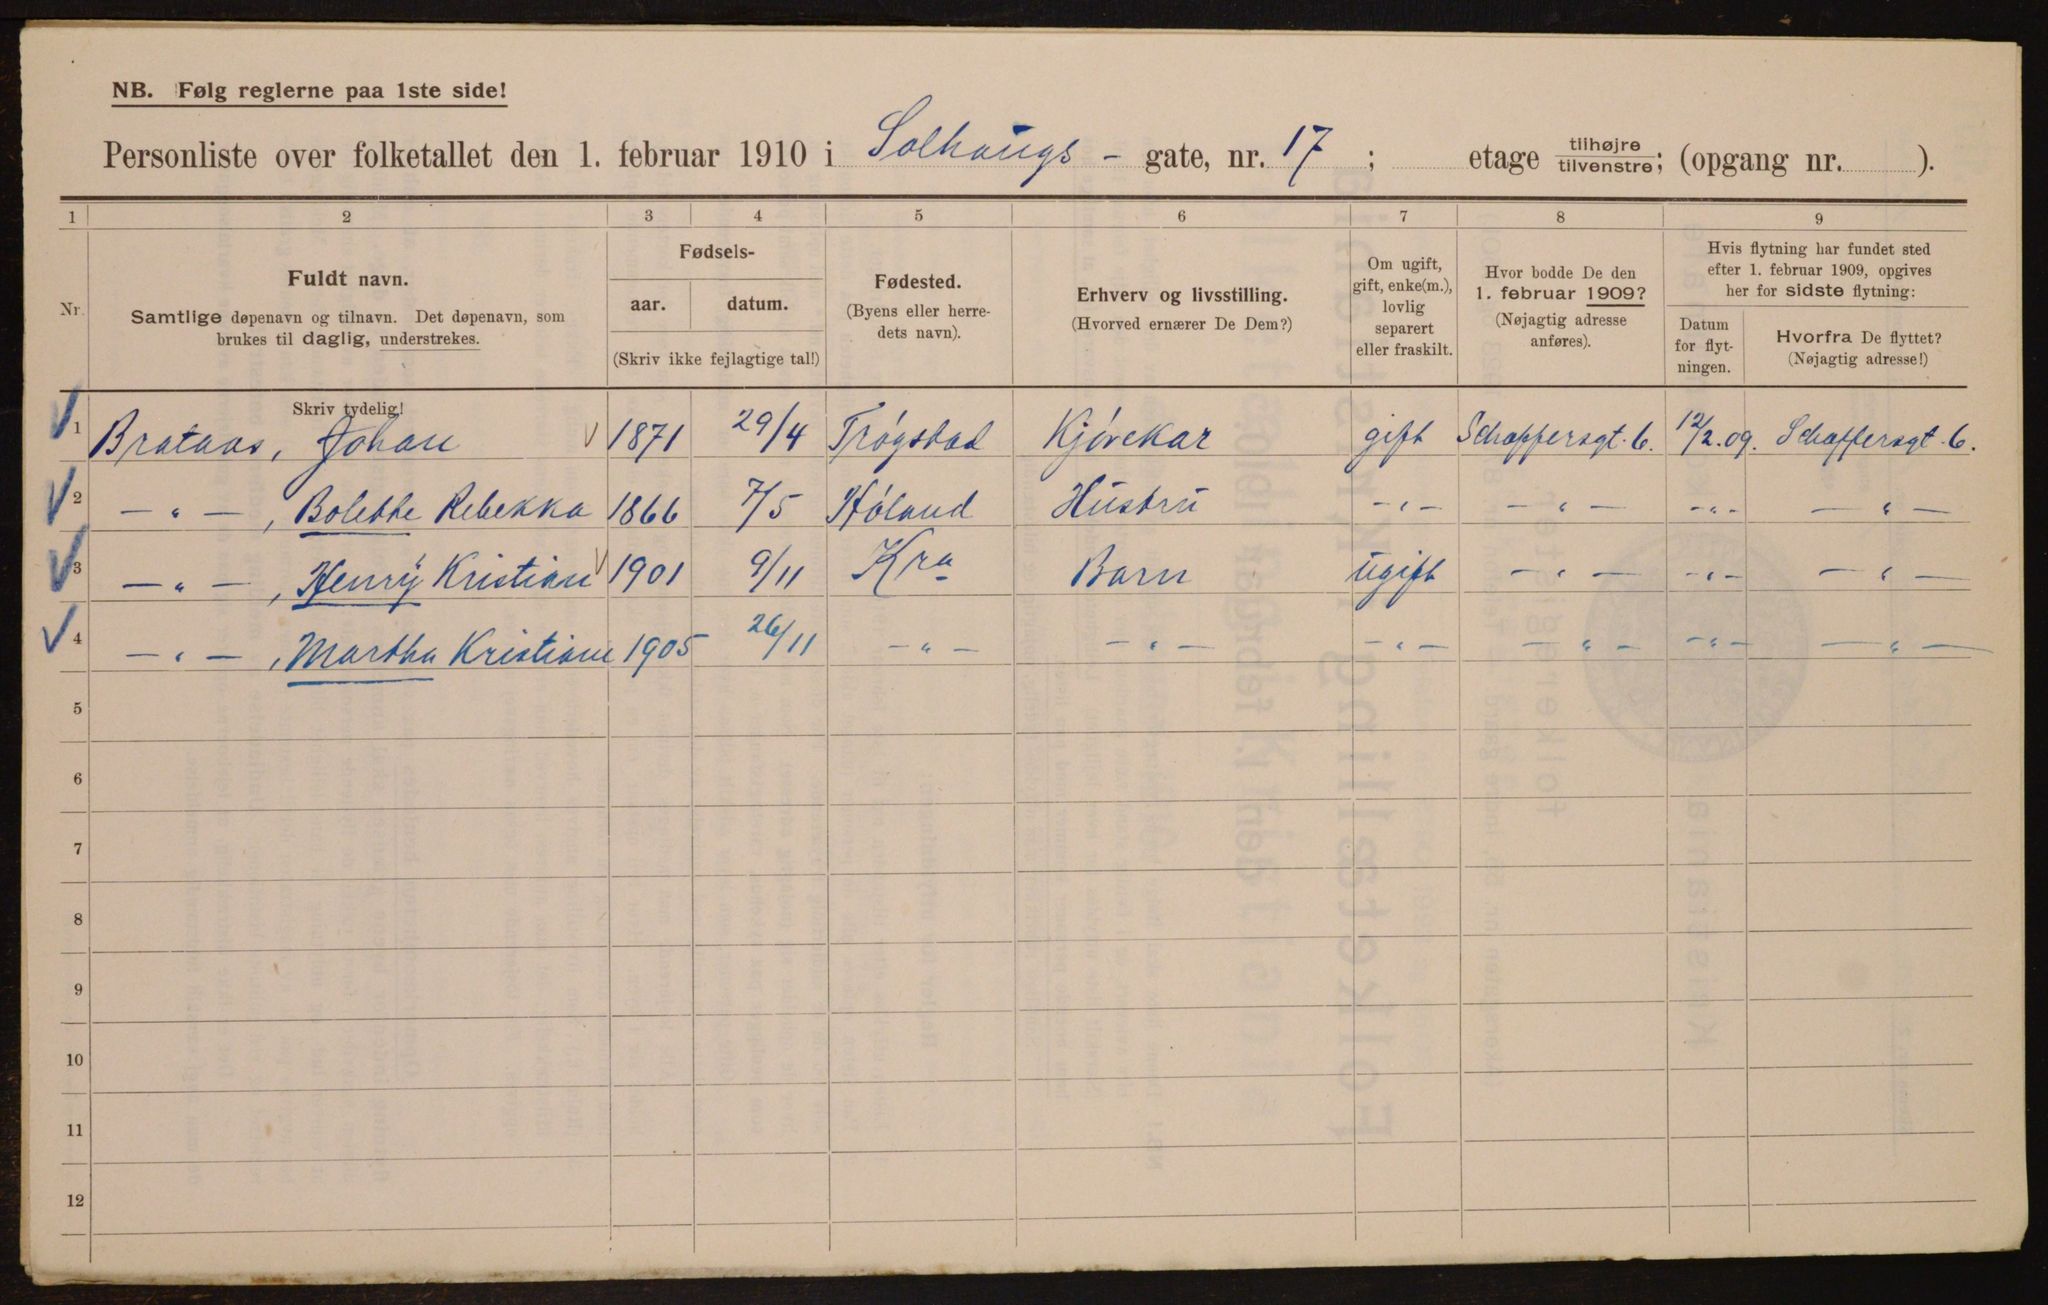 NB. Følg reglerne paa 1ste side!
Personliste over folketallet den 1. februar 1910 i Solhaugs - gate, nr. 17 ; etage tilhøjre/tilvenstre; (opgang nr. ).
1 2 3 4 5 6 7 8 9
Nr.
Fuldt navn.
Samtlige døpenavn og tilnavn. Det døpenavn, som
brukes til daglig, understrekes.
Skriv tydelig!
Fødsels-
aar. datum.
(Skriv ikke fejlagtige tal!)
Fødested.
(Byens eller herre-
dets navn).
Erhverv og livsstilling.
(Hvorved ernærer De Dem?)
Om ugift,
gift, enke(m.),
lovlig
separert
eller fraskilt.
Hvor bodde De den
1. februar 1909?
(Nøjagtig adresse
anføres).
Hvis flytning har fundet sted
efter 1. februar 1909, opgives
her for sidste flytning:
Datum
for flyt-
ningen.
Hvorfra De flyttet?
(Nøjagtig adresse!)
1 Brataas, Johan 1871 29/4 Trøgstad Kjørekar gift Schaffersgt. 6. 12/2.09. Schaffersgt. 6.
2 — " — , Bolette Rebekka 1866 7/5 Høland Hustru — " — — " — — " — — " —
3 — " — , Henry Kristian 1901 9/11 Kra Barn ugift — " — — " — — " —
4 — " — , Martha Kristiane 1905 26/11 — " — — " — — " — — " — — " — — " —
5
6
7
8
9
10
11
12